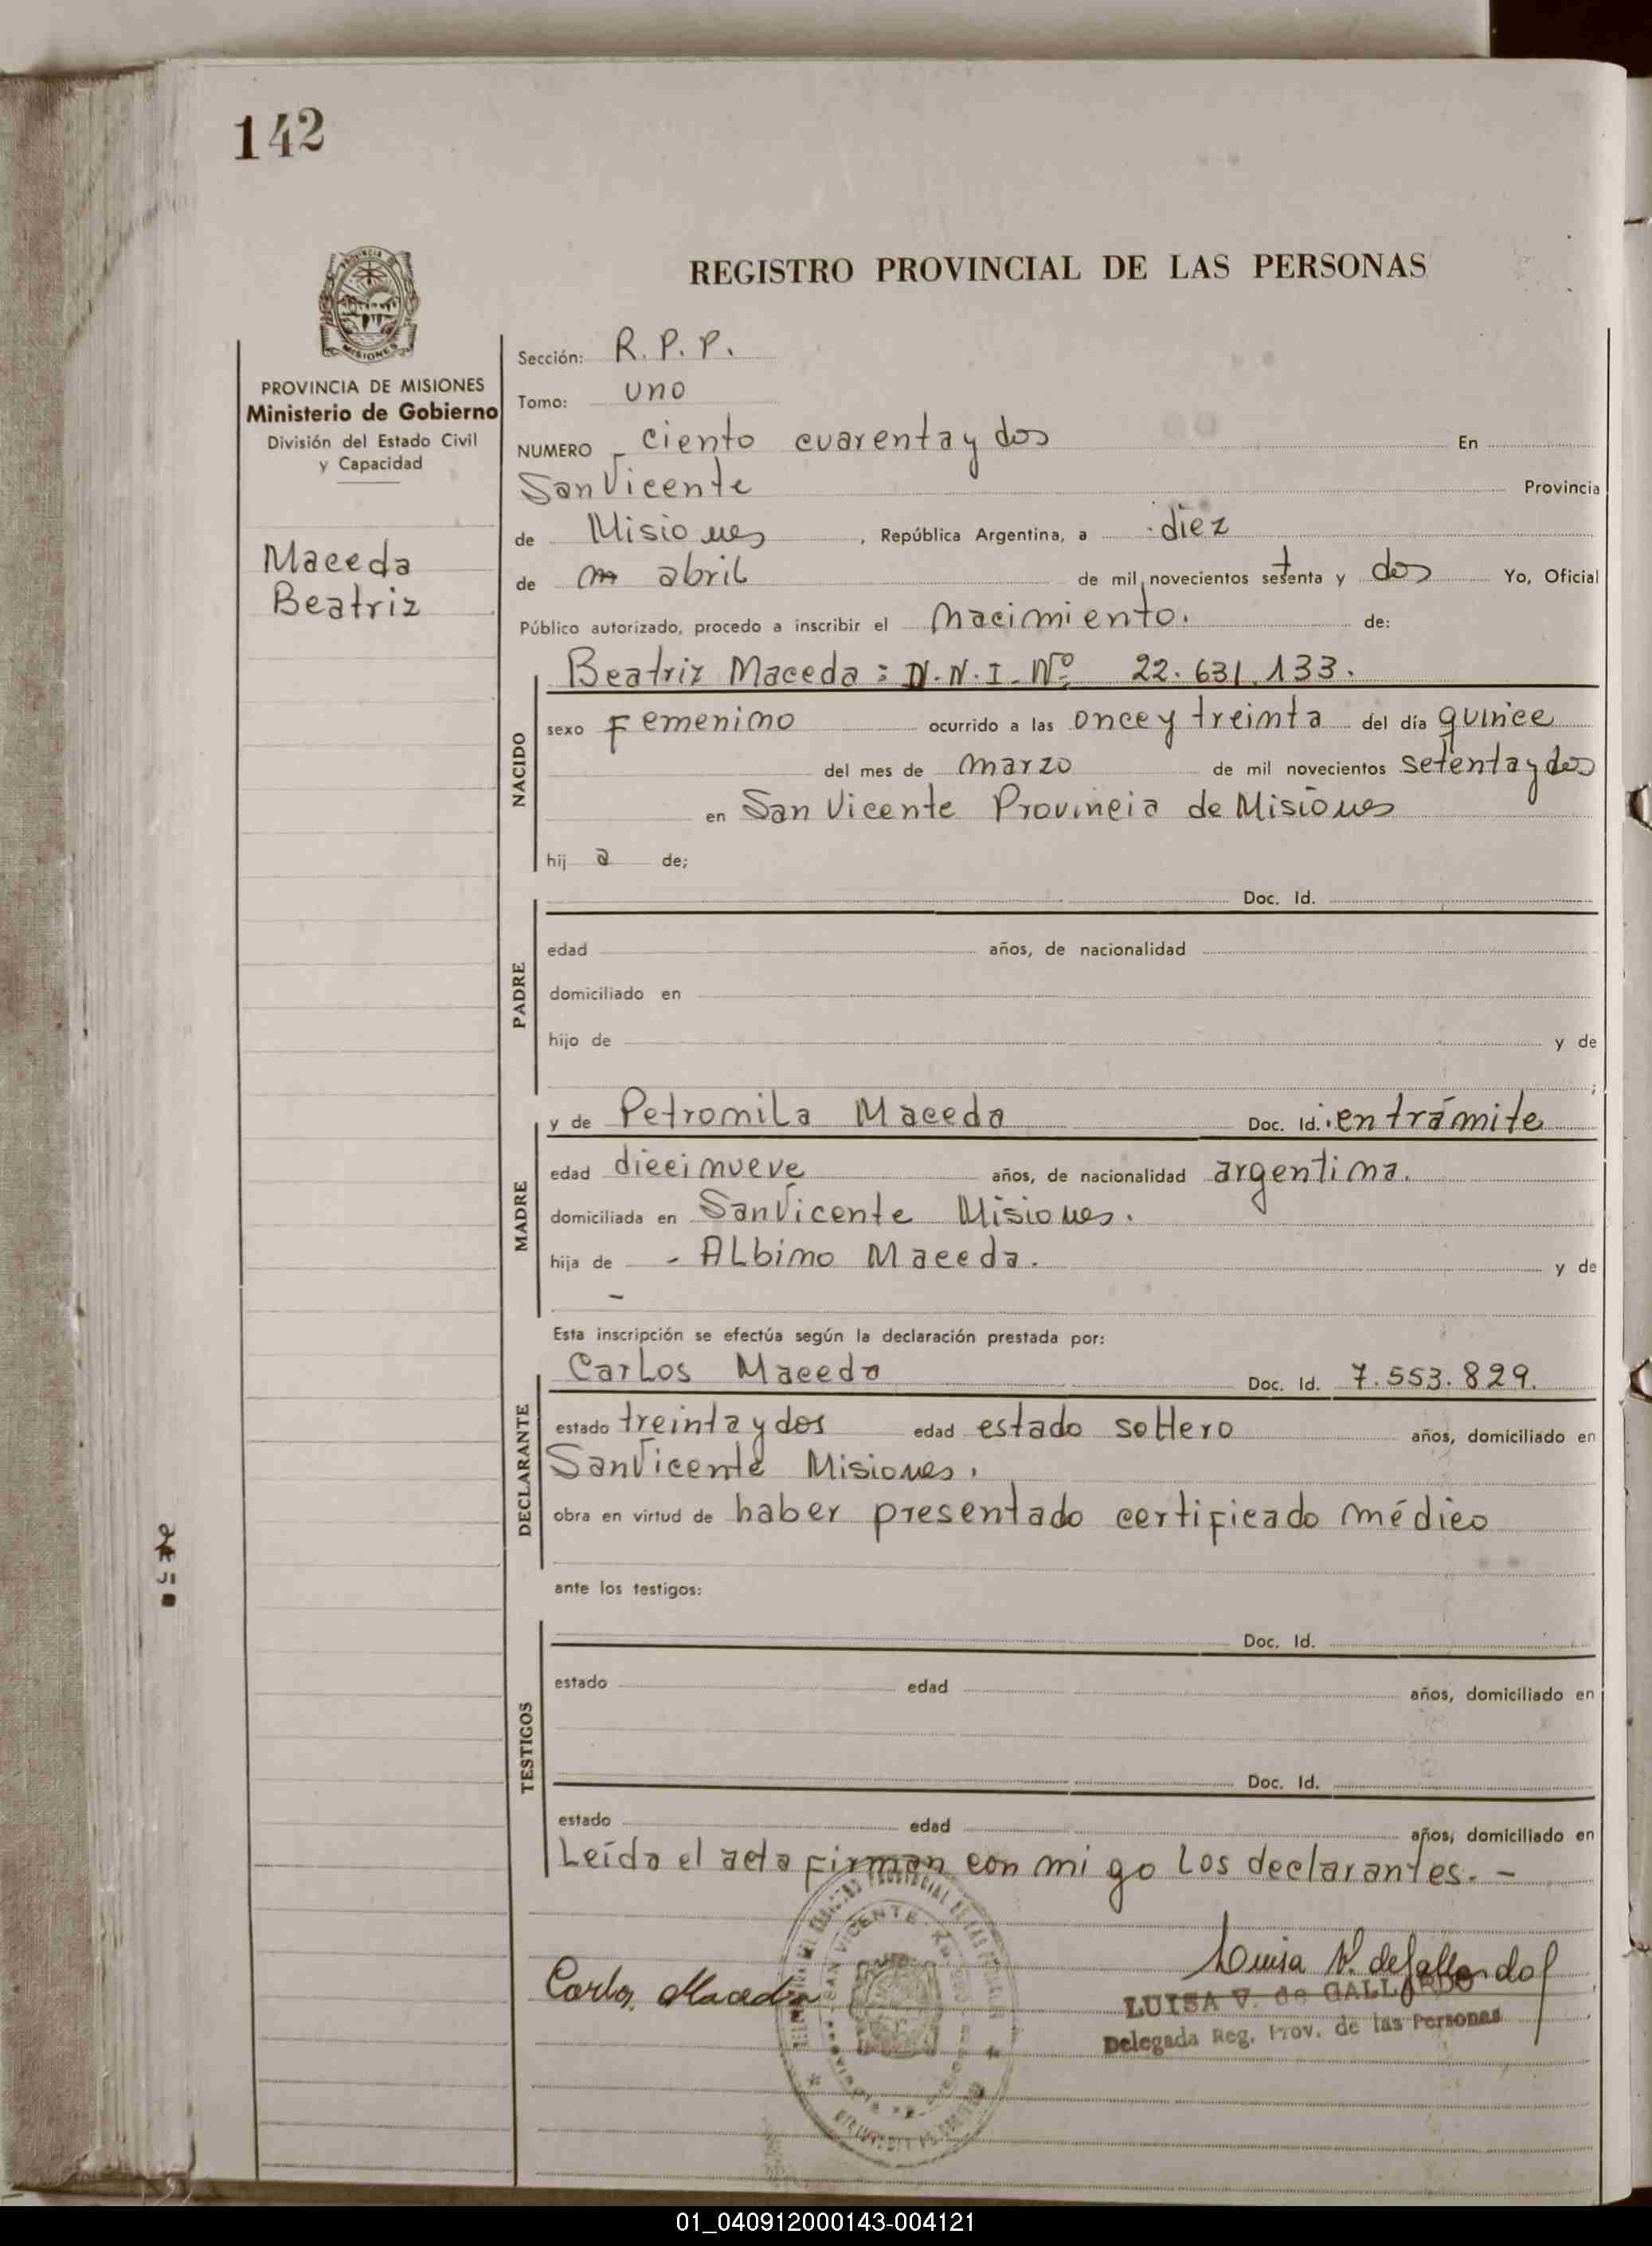 142
REGISTRO PROVINCIAL DE LAS PERSONAS
MISIONES
PROVINCIA DE MISIONES
Ministerio de Gobierno
División del Estado Civil
y Capacidad
Maceda
Beatriz
Sección: R. P. P.
Tomo: uno
NUMERO ciento cuarenta y dos En
San Vicente Provincia
de Misiones, República Argentina, a diez
de m abril de mil novecientos setenta y dos Yo, Oficial
Público autorizado, procedo a inscribir el Nacimiento. de:
NACIDO
Beatriz Maceda: D.N.I. Nº 22.631.133.
sexo Femenino ocurrido a las once y treinta del día quince
del mes de marzo de mil novecientos setenta y dos
en San Vicente Provincia de Misiones
hij a de;
PADRE
Doc. Id.
edad años, de nacionalidad
domiciliado en
hijo de y de
;
MADRE
y de Petromila Maceda Doc. Id. en trámite
edad diecinueve años, de nacionalidad argentina.
domiciliada en San Vicente Misiones.
hija de - Albino Maceda. y de
-
Esta inscripción se efectúa según la declaración prestada por:
DECLARANTE
Carlos Maceda Doc. Id. 7.553.829.
estado treinta y dos edad estado soltero años, domiciliado en
San Vicente Misiones.
obra en virtud de haber presentado certificado médico
ante los testigos:
TESTIGOS
Doc. Id.
estado edad años, domiciliado en
Doc. Id.
estado edad años, domiciliado en
Leída el acta firman conmigo los declarantes. -
Carlos Maceda
Luisa V. de Gallardo
LUISA V. de GALLARDO
Delegada Reg. Prov. de las Personas
SAN VICENTE
01_040912000143-004121